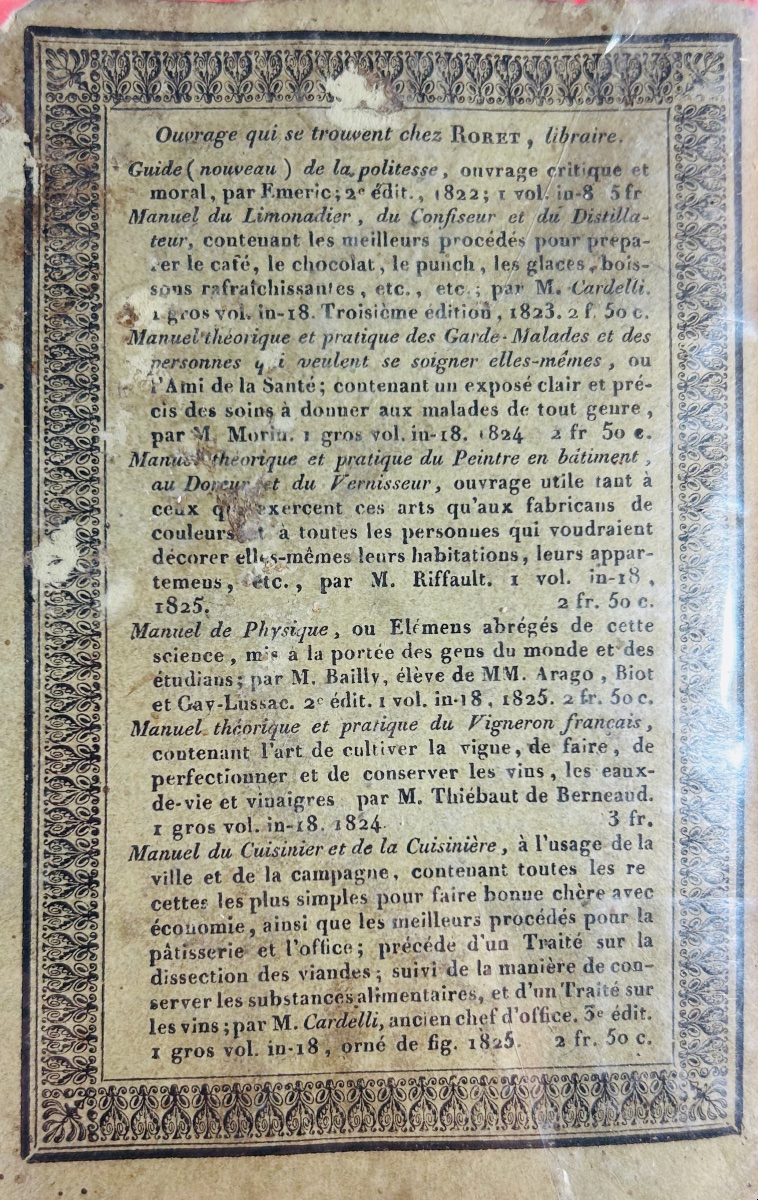 Ouvrage qui se trouvent chez RORET, libraire.
Guide (nouveau) de la politesse, ouvrage critique et
moral, par Emeric; 2e édit., 1822; 1 vol. in-8 5 fr
Manuel du Limonadier, du Confiseur et du Distilla-
teur, contenant les meilleurs procédés pour prépa-
rer le café, le chocolat, le punch, les glaces, bois-
sons rafraîchissantes, etc., etc.; par M. Cardelli.
1 gros vol. in-18. Troisième édition, 1823. 2 f. 50 c.
Manuel théorique et pratique des Garde-Malades et des
personnes qui veulent se soigner elles-mêmes, ou
l'Ami de la Santé; contenant un exposé clair et pré-
cis des soins à donner aux malades de tout genre,
par M. Morin. 1 gros vol. in-18. 1824 2 fr 50 c.
Manuel théorique et pratique du Peintre en bâtiment,
au Doreur et du Vernisseur, ouvrage utile tant à
ceux qui exercent ces arts qu'aux fabricans de
couleurs et à toutes les personnes qui voudraient
décorer elles-mêmes leurs habitations, leurs appar-
temens, etc., par M. Riffault. 1 vol. in-18,
1825. 2 fr. 50 c.
Manuel de Physique, ou Elémens abrégés de cette
science, mis à la portée des gens du monde et des
étudians; par M. Bailly, élève de MM. Arago, Biot
et Gay-Lussac. 2e édit. 1 vol. in-18, 1825. 2 fr. 50 c.
Manuel théorique et pratique du Vigneron français,
contenant l'art de cultiver la vigne, de faire, de
perfectionner et de conserver les vins, les eaux-
de-vie et vinaigres par M. Thiébaut de Berneaud.
1 gros vol. in-18. 1824. 3 fr.
Manuel du Cuisinier et de la Cuisinière, à l'usage de la
ville et de la campagne, contenant toutes les re
cettes les plus simples pour faire bonne chère avec
économie, ainsi que les meilleurs procédés pour la
pâtisserie et l'office; précéde d'un Traité sur la
dissection des viandes; suivi de la manière de con-
server les substances alimentaires, et d'un Traité sur
les vins; par M. Cardelli, ancien chef d'office. 3e édit.
1 gros vol. in-18, orné de fig. 1825. 2 fr. 50 c.